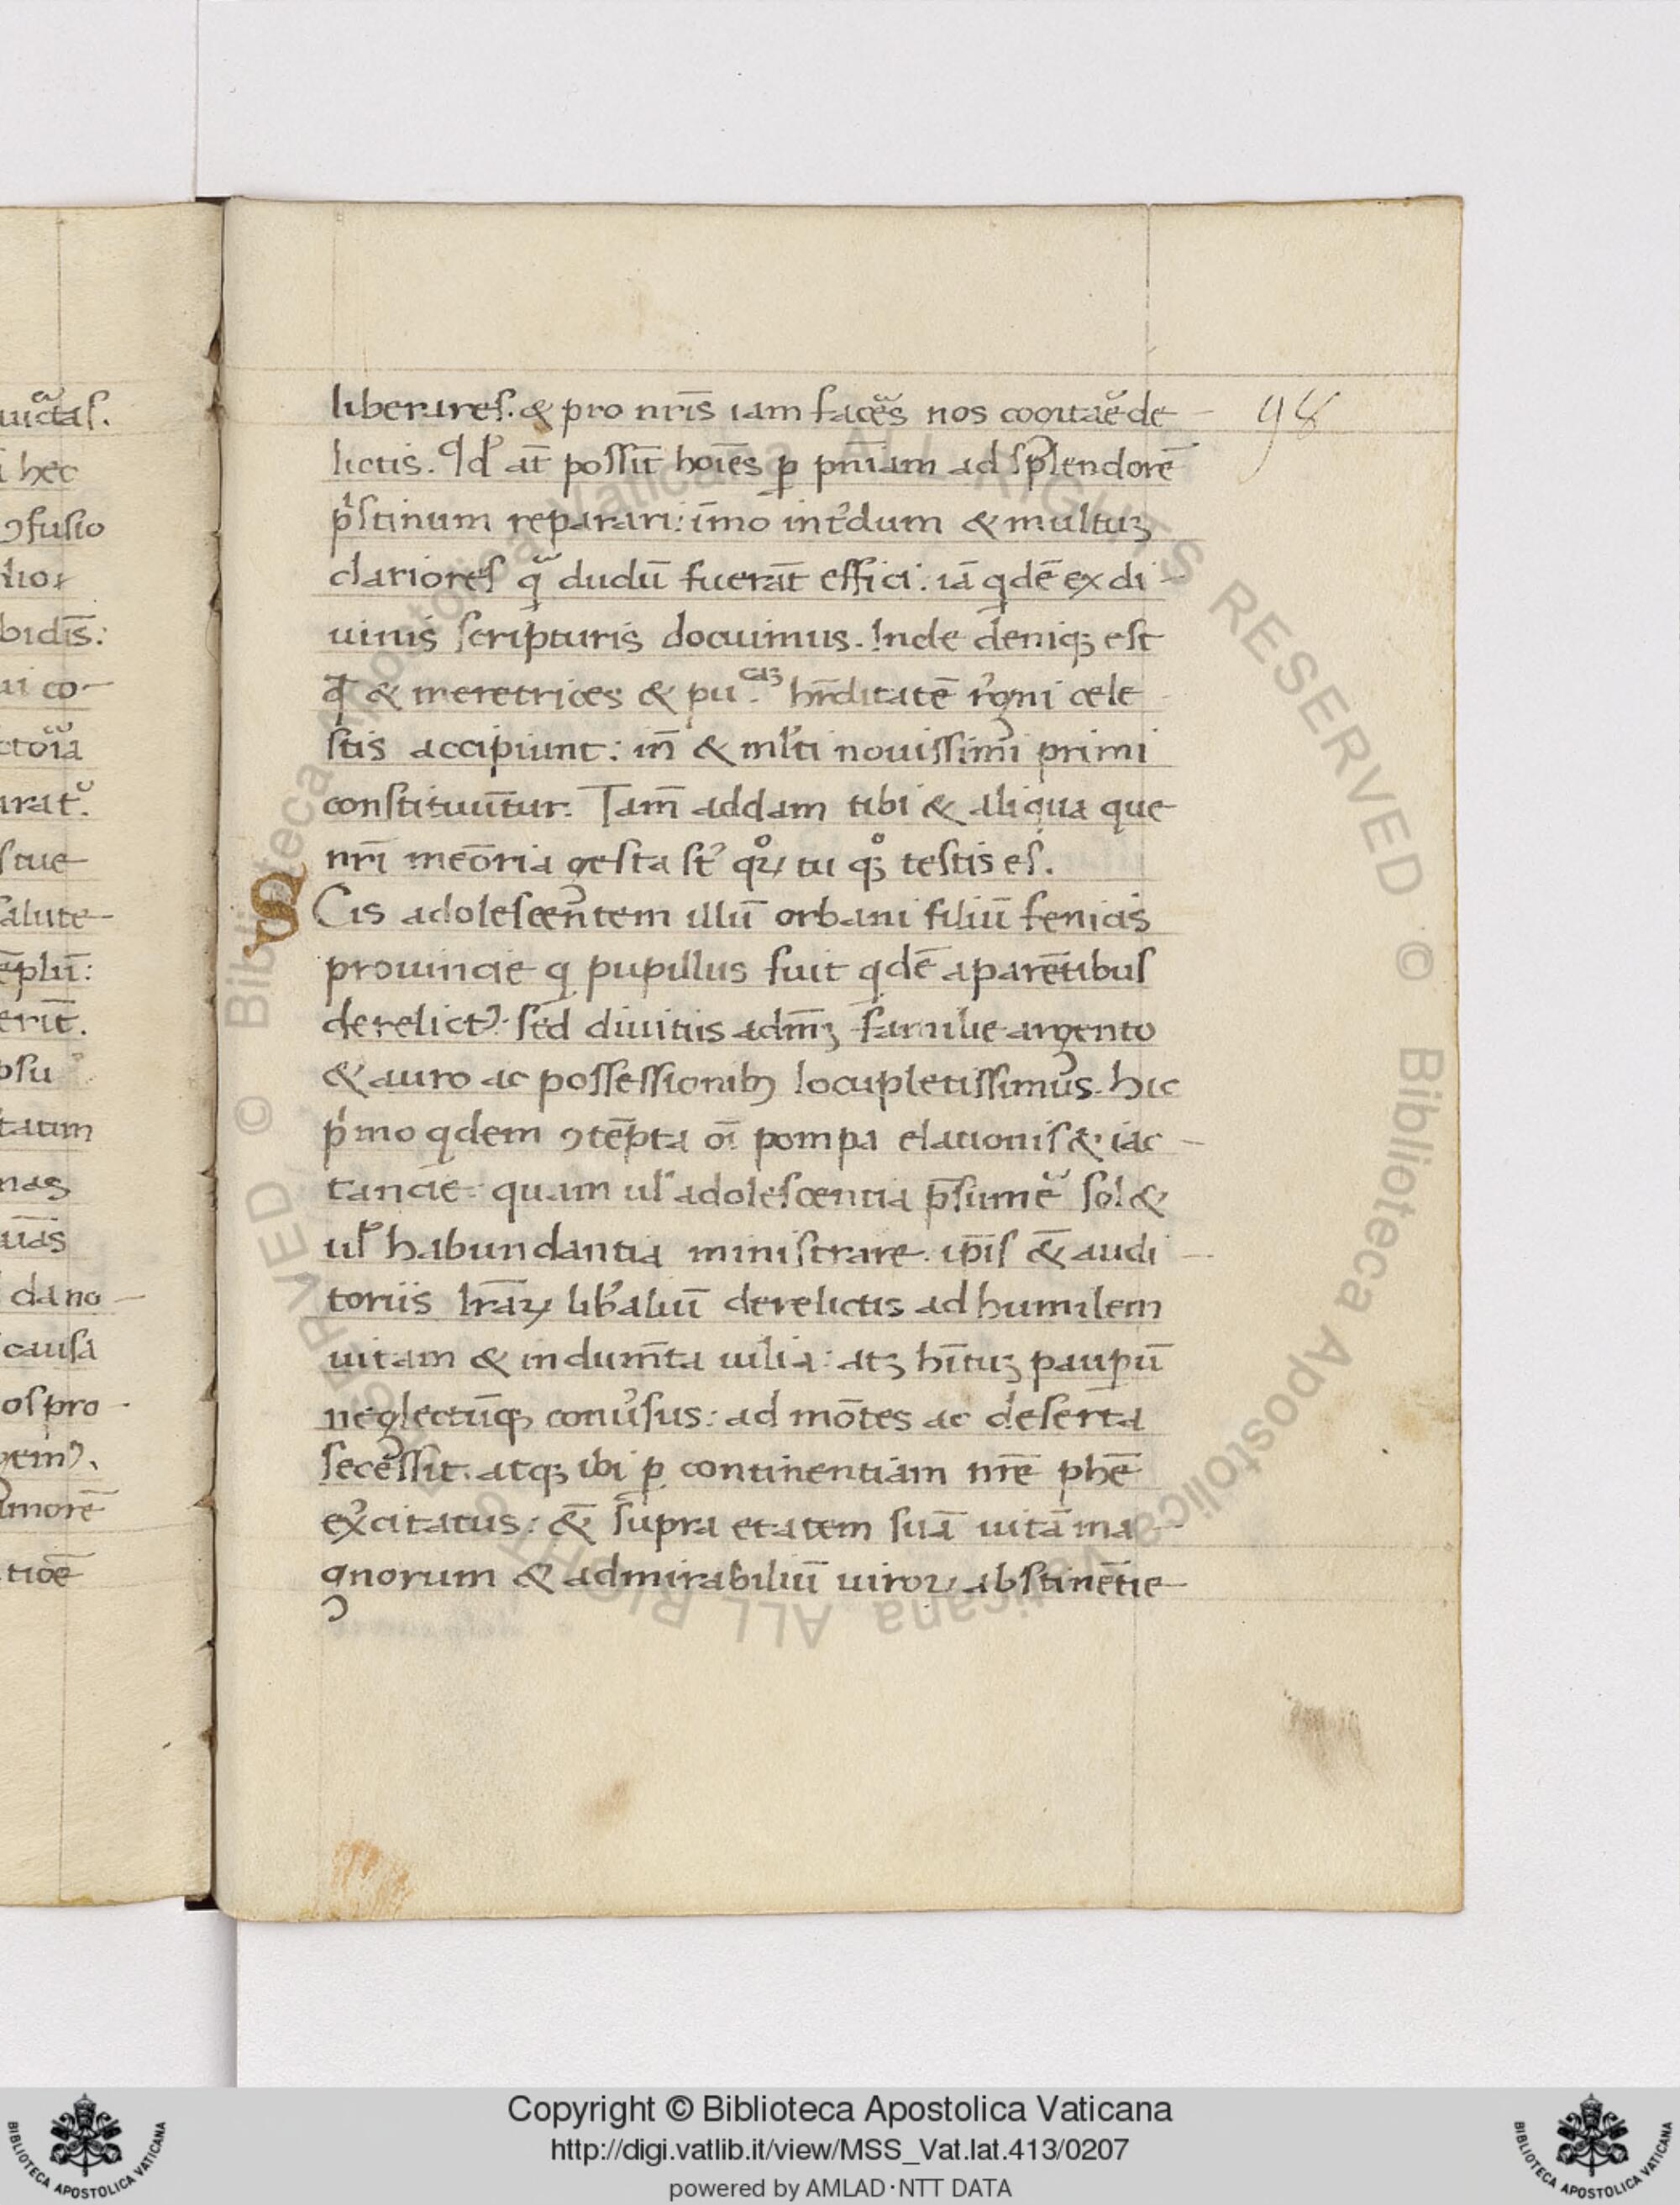 uict̄as.
hec
ꝯfusio
bidis̄:
ui co-
ctoīa
arat᷒.
stue
salute-
ēplū:
erit̄.
psu
tatim
nas
ūas
cla no-
causa
os pro-
amorē
tioē
liberares. & pro nr̄is iam faceᷓs nos cogitaē de- 98
lictis. Qd̛ at̄ possīt hoīes ꝑ pn̄iam ad splendorē
pͥstinum reparari: īmo int̛dum & multuꝫ
clariores qᷓ dudū fuerāt effici: iā qdē ex di-
uinis scripturis docuimus. Inde deniqꝫ est
qd̄ & meretrices & puᶜᵃꝫ hr̄ditatē r̛gni cele
stis accipiunt: in̄ & ml̛ti nouissimi primi
constituūtur. Tam̄ addam tibi & aliqua que
nr̄i meōria gesta st̛ qͦꝝ tu qͦꝫ testis es.
SCis adolescentem illū orbani filiū fenicis
prouincie q pupillus fuit qdē a parētibus
derelictꝰ: sed diuitiis adm̄ꝫ familie argento
& auro ac possessionibꝫ locupletissimus. hic
pͥmo qdem ꝯtēpta oī pompa elationis & iac-
tancie: quam ul̛ adolescentia p̄sumeᷓ sol&
ul̛ habundantia ministrare. ip̄is &̄ audi-
toriis lr̄aꝝ lib̛aliū derelictis ad humilem
uitam & indum̄ta uilia: atꝫ hītuꝫ paupū
neglectūqꝫ conưsus: ad mōtes ac deserta
secessit. atqꝫ ibi ꝑ continentiam nr̄e phē
ex̛citatus: &̄ supra etatem suā uitā ma-
gnorum & admirabiliū uiroꝝ abstinētie-
© Biblioteca Apostolica Vaticana ALL RIGHTS RESERVED © Biblioteca Apostolica Vaticana ALL RIGHTS RESERVED
Copyright © Biblioteca Apostolica Vaticana
http://digi.vatlib.it/view/MSS_Vat.lat.413/0207
powered by AMLAD·NTT DATA
BIBLIOTECA APOSTOLICA VATICANA
BIBLIOTECA APOSTOLICA VATICANA